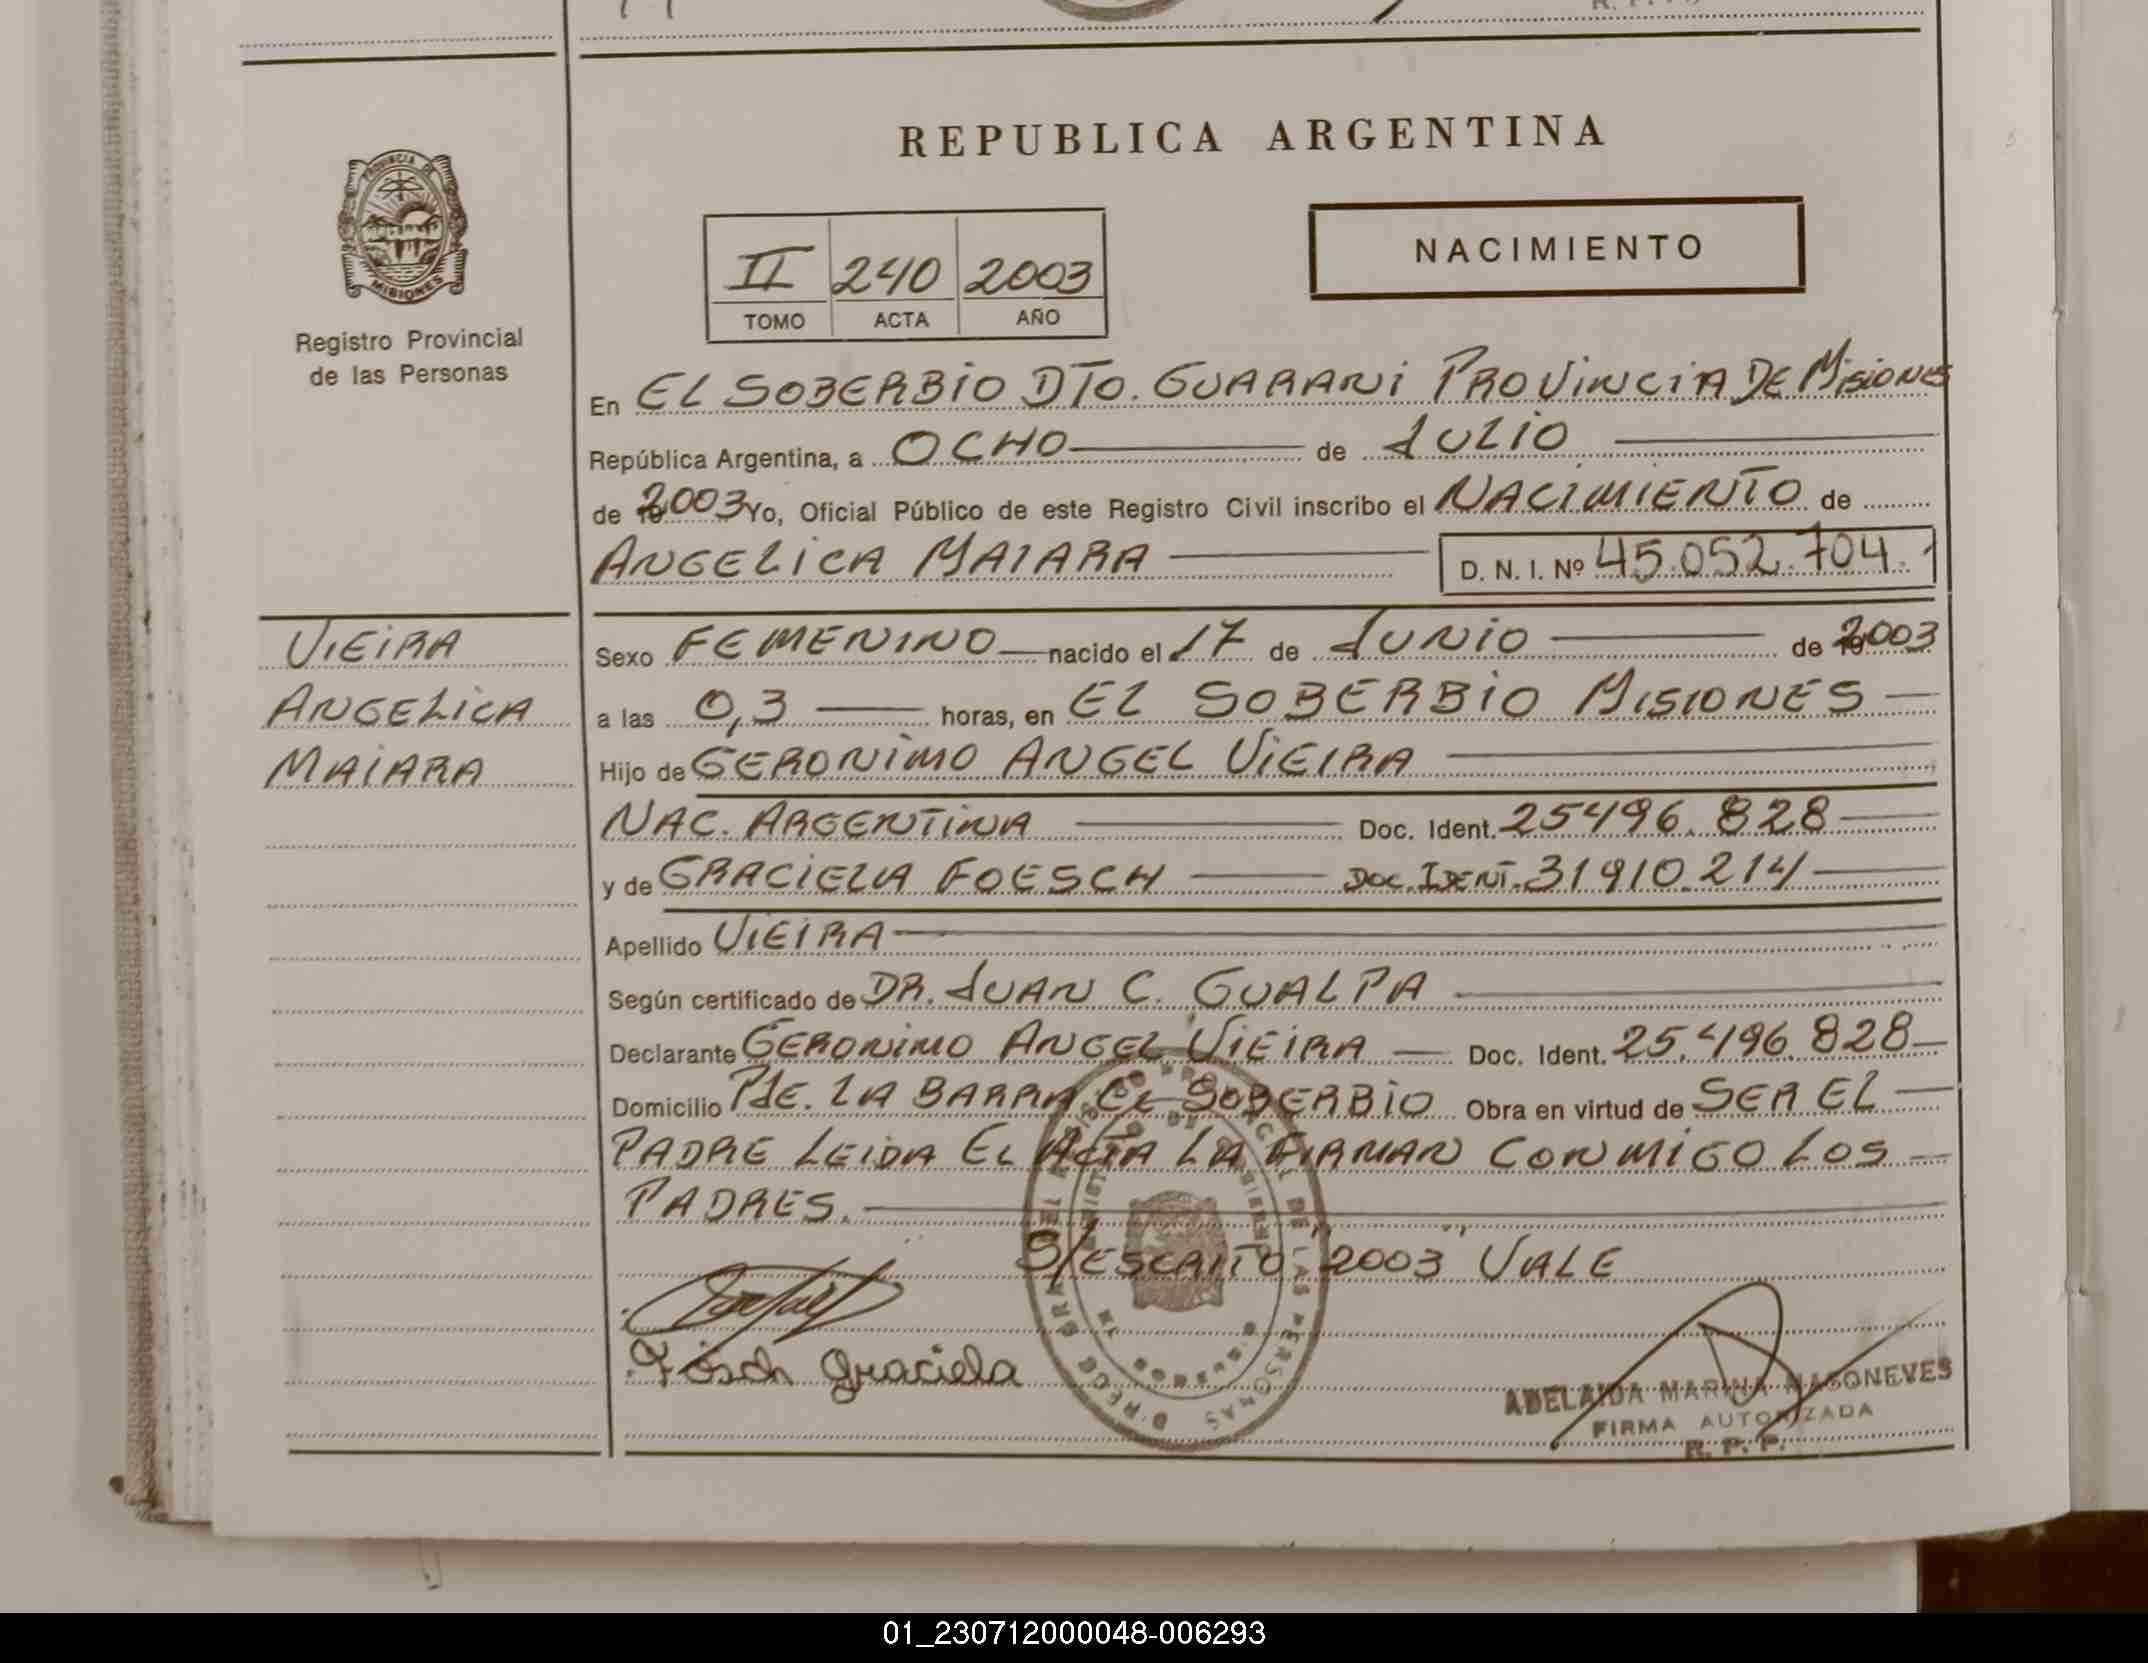 REPUBLICA ARGENTINA
PROVINCIA DE
MISIONES
Registro Provincial
de las Personas
II 240 2003
TOMO ACTA AÑO
NACIMIENTO
En EL SOBERBIO DTO. GUARANI PROVINCIA DE MISIONES
República Argentina, a OCHO de JULIO
de 2003 Yo, Oficial Público de este Registro Civil inscribo el NACIMIENTO de
ANGELICA MAIARA D. N. I. Nº 45.052.704.
VIEIRA
ANGELICA
MAIARA
Sexo FEMENINO nacido el 17 de JUNIO de 2003
a las 0,3 horas, en EL SOBERBIO MISIONES
Hijo de GERONIMO ANGEL VIEIRA
NAC. ARGENTINA Doc. Ident. 25496.828
y de GRACIELA FOESCH DOC. IDENT. 31910.214
Apellido VIEIRA
Según certificado de DR. JUAN C. GUALPA
Declarante GERONIMO ANGEL VIEIRA Doc. Ident. 25.496.828
Domicilio PJE. LA BARRA EL SOBERBIO Obra en virtud de SER EL
PADRE LEIDA EL ACTA LA FIRMAN CONMIGO LOS
PADRES.
S/ESCRITO "2003" VALE
Fösch Graciela
ADELAIDA MARINA MAGONEVES
FIRMA AUTORIZADA
R. P. P.
01_230712000048-006293